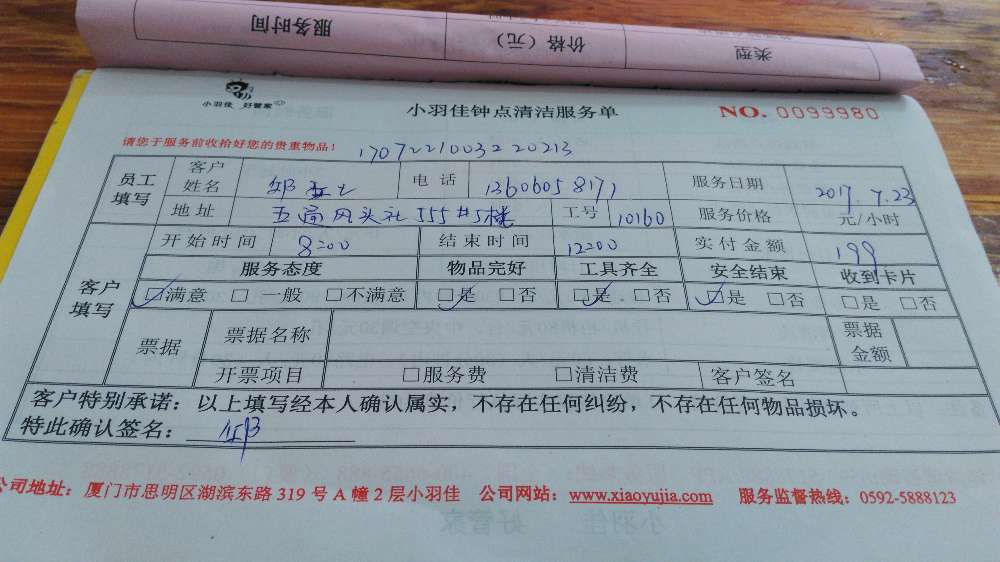 服务时间 价格（元） 类型
小羽佳 好管家
小羽佳钟点清洁服务单
NO. 0099980
请您于服务前收拾好您的贵重物品！
1707221003220213
员工填写 客户姓名 邹女士 电话 服务日期 2017.7.23
地址 工号 10160 服务价格 元/小时
客户填写 开始时间 8:00 结束时间 12:00 实付金额 199
服务态度 物品完好 工具齐全 安全结束 收到卡片
☑满意 □一般 □不满意 ☑是 □否 ☑是 □否 ☑是 □否 □是 □否
票据 票据名称 票据金额
开票项目 □服务费 □清洁费 客户签名
客户特别承诺：以上填写经本人确认属实，不存在任何纠纷，不存在任何物品损坏。
特此确认签名：
公司地址：厦门市思明区湖滨东路 319 号 A 幢 2 层小羽佳 公司网站：www.xiaoyujia.com 服务监督热线：0592-5888123